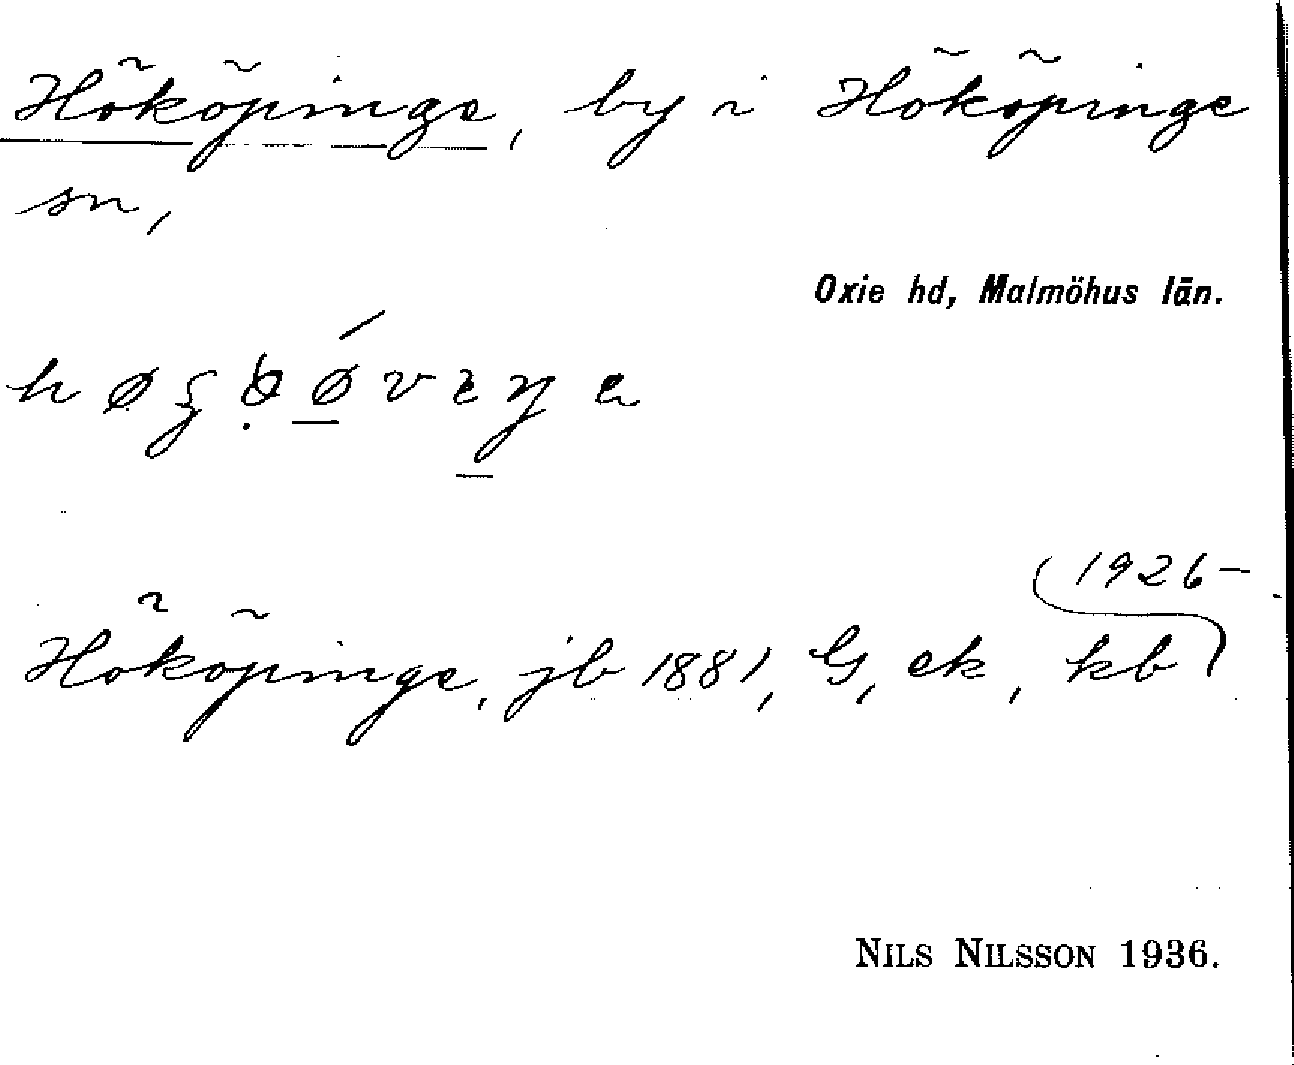 Hököpinge, by i Hököpinge
sn,
Oxie hd, Malmöhus län.
Hököpinge, jb 1881, G, ek, kb
1926–
NILS NILSSON 1936.